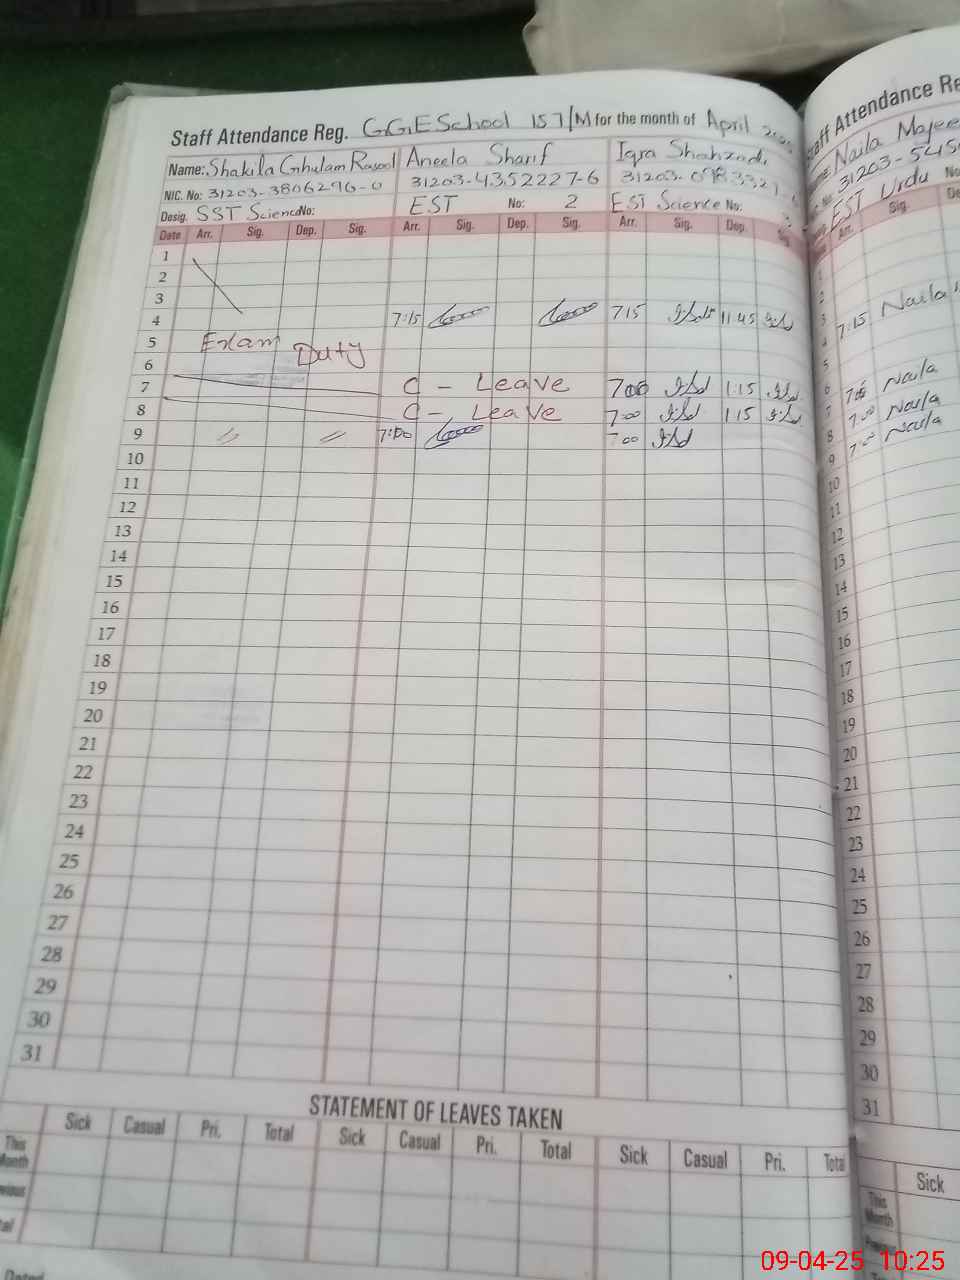 Staff Attendance Reg. GGESchool 157/M for the month of April
Name: Shakila Ghulam Rasool Aneela Sharif Iqra Shahzadi
NIC. No: 31203-3806296-0 31203-4352227-6 31203-
Desig. SST Science No: EST No: 2 EST Science No:
Date Arr. Sig. Dep. Sig. Arr. Sig. Dep. Sig. Arr. Sig. Dep. Sig
1
2
3
4 7:15 715 11 45
5 Exam Duty
6
7 C - Leave 700 1:15
8 C - Leave 7:00 1:15
9 〃 〃 7:00 700
10
11
12
13
14
15
16
17
18
19
20
21
22
23
24
25
26
27
28
29
30
31
STATEMENT OF LEAVES TAKEN
Sick Casual Pri. Total Sick Casual Pri. Total Sick Casual Pri. Total
This
Month
Attendance Re
Naila Majee
31203-545
EST Urdu No
Arr. Sig. De
1
2
3 7:15 Naila
4
5
6 Naila
7 Naila
8 Naila
9
10
11
12
13
14
15
16
17
18
19
20
21
22
23
24
25
26
27
28
29
30
31
Sick
This
Month
09-04-25 10:25